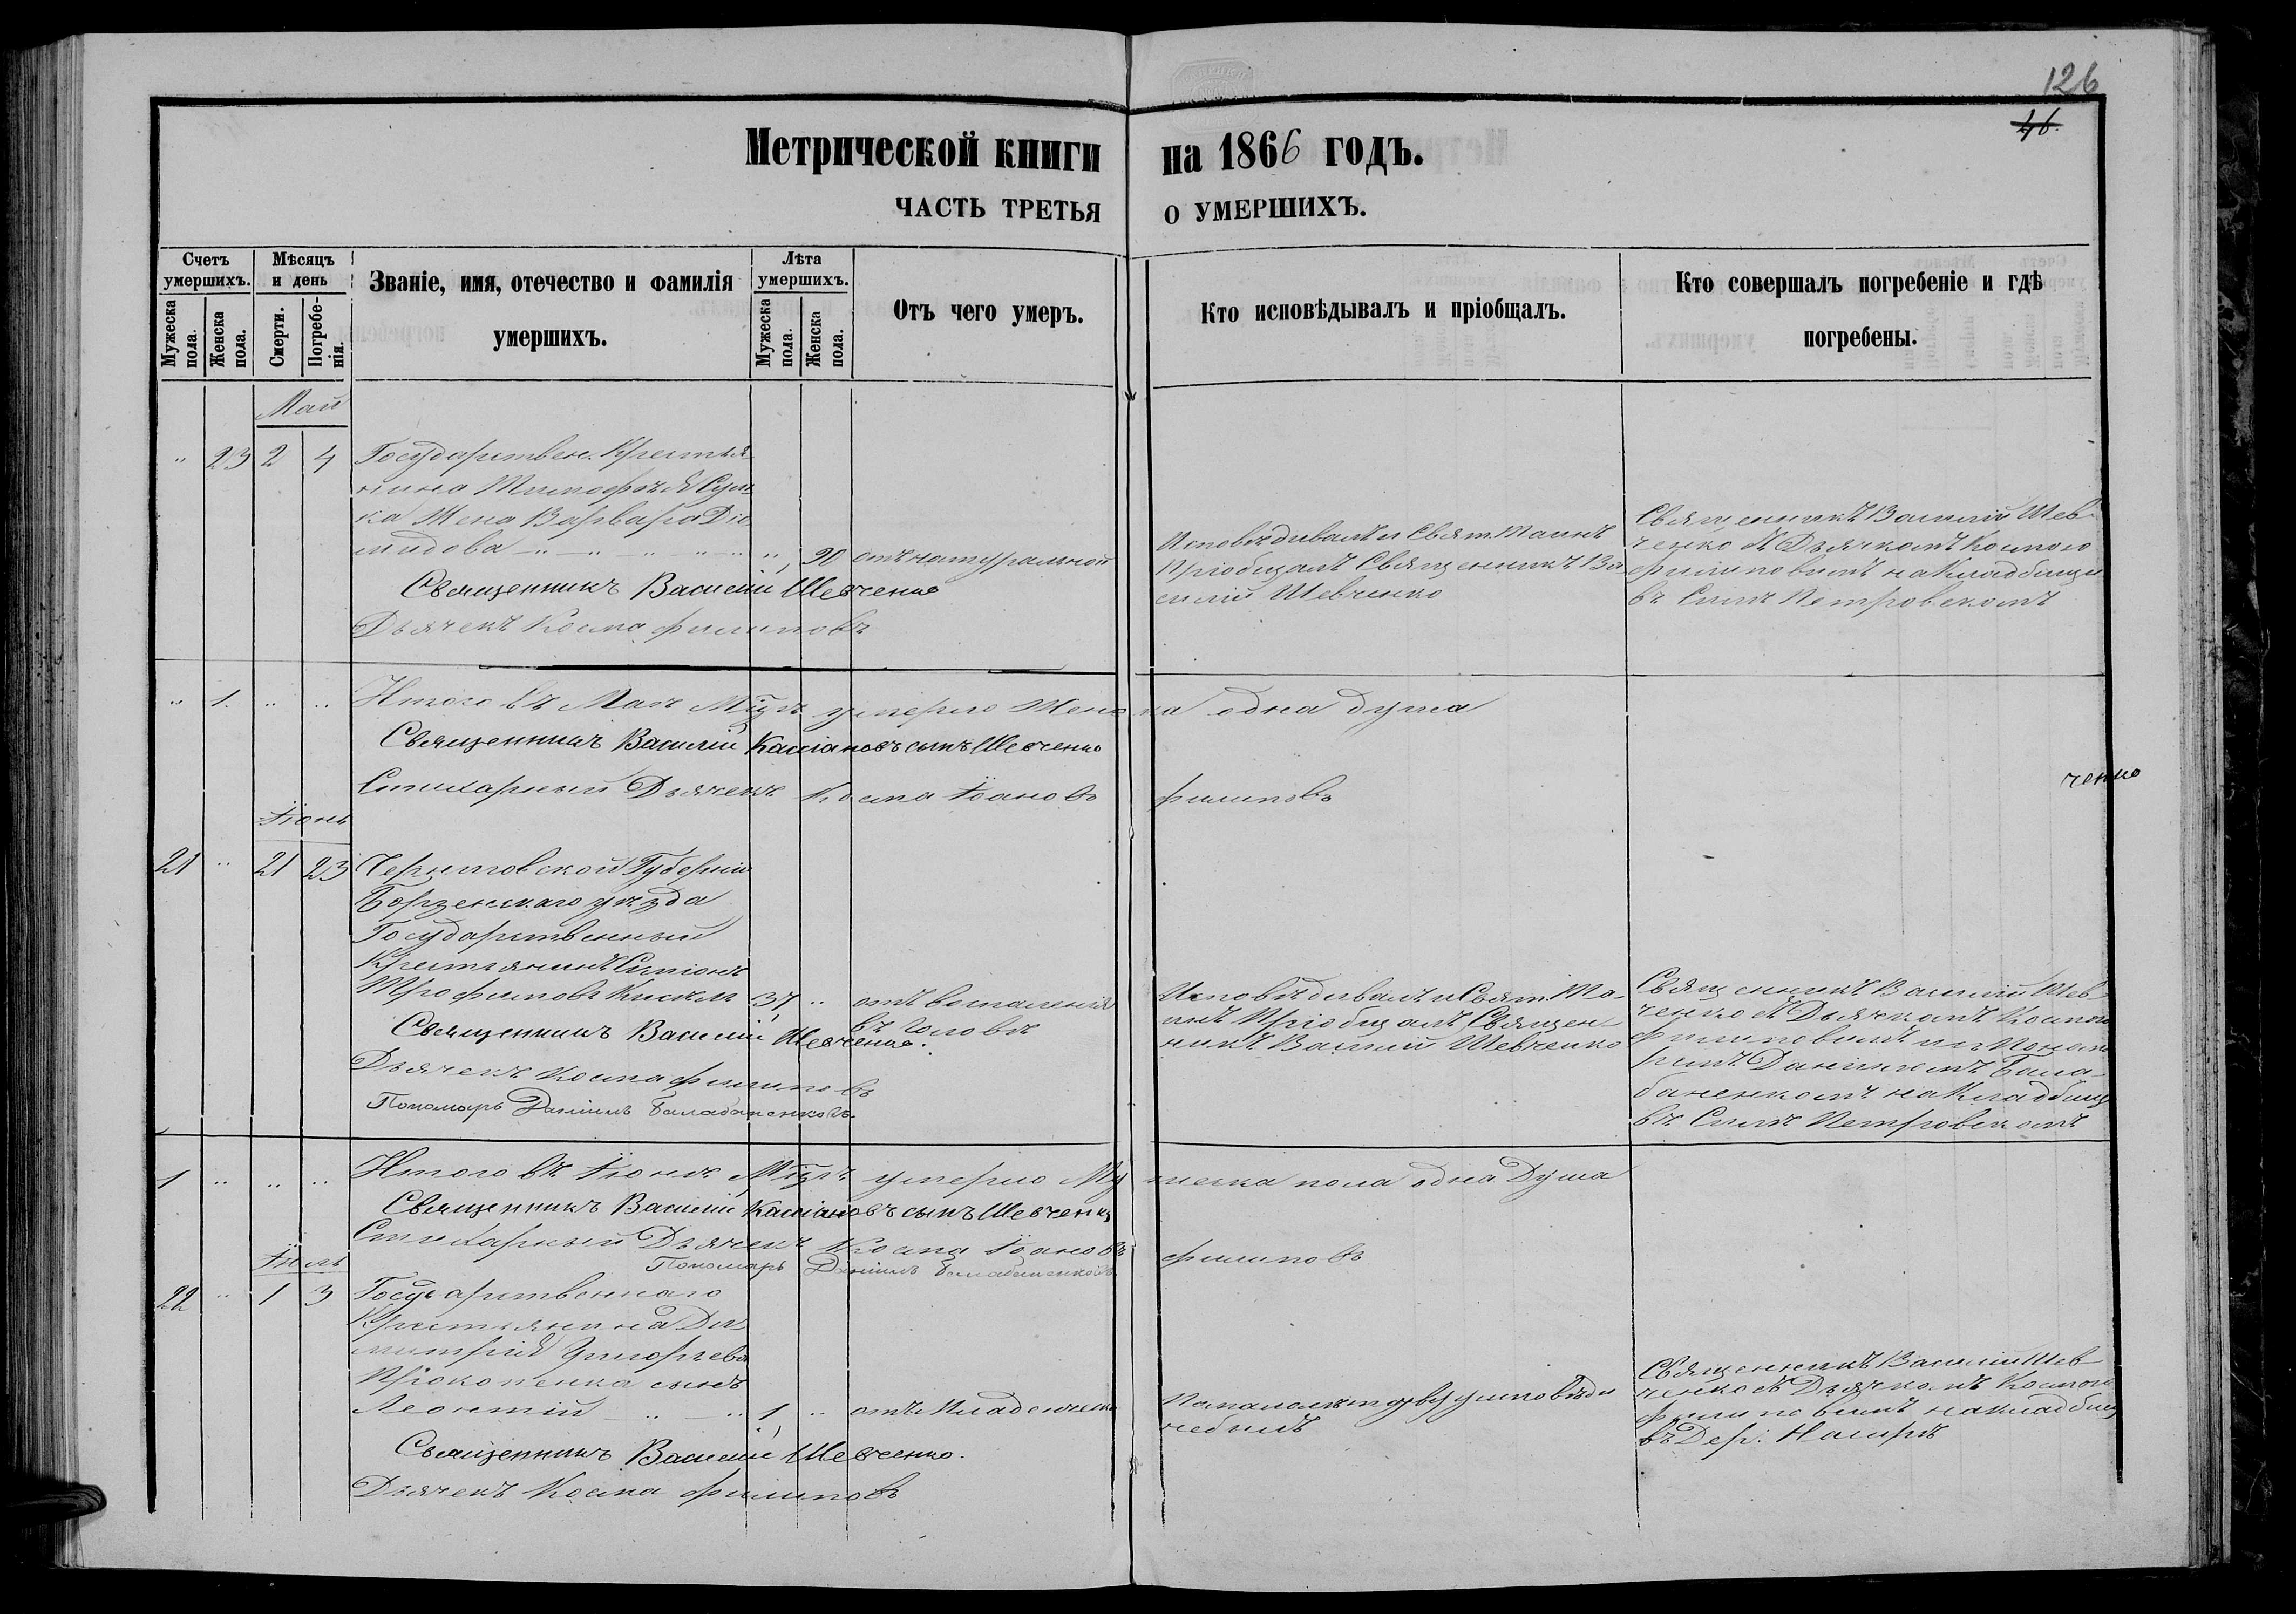 126
46.
Метрической книги на 1866 годъ.
ЧАСТЬ ТРЕТЬЯ О УМЕРШИХЪ.
Счетъ умершихъ.
Мужеска пола.
Женска пола.
Мѣсяцъ и день
Смерти.
Погребенія.
Званіе, имя, отечество и фамилія
умершихъ.
Лѣта умершихъ.
Мужеска пола.
Женска пола.
Отъ чего умеръ.
Кто исповѣдывалъ и пріобщалъ.
Кто совершалъ погребеніе и гдѣ
погребены.
Май
" 23 2 4 Государствен. Крестья
нина Тимофѣя
ка Жена Варвара Діо
мидова 90 отъ натуральной
Священникъ Василій Шевченко
Дьячекъ Косма Филиповъ
Исповѣдивалъ и Свят. Таинъ
Пріобщалъ Священникъ Ва
силій Шевченко
Священникъ Василій Шев
ченко съ Дьячкомъ Космою
Филиповымъ на Кладбищи
въ Селѣ Петровскомъ
" 1. " " Итого въ Маѣ Мцѣ умерло Женска одна душа
Священникъ Василій Кассіановъ сынъ Шевченко
Стихарный Дьячекъ Косма Іоановъ Филиповъ
ченко
Іюнь
21 " 21 23 Черниговской Губерніи
Борзенскаго уѣзда
Государственный
Крестьянинъ Симіонъ
Трофимовъ Кисель 37 " отъ воспаленія
въ головѣ
Священникъ Василій Шевченко.
Дьячекъ Косма Филиповъ
Пономарь Даніилъ Балабаненковъ.
Исповѣдивалъ и Свят. Та-
инъ Пріобщалъ Священ-
никъ Василій Шевченко
Священникъ Василій Шев
ченко съ Дьячкомъ Космою
Филиповымъ и Понома
ремъ Даніиломъ Бала
баненкомъ на Кладбищѣ
въ Селѣ Петровскомъ
1 " " " Итого въ Іюнѣ Мцѣ умерло Мужеска пола одна Душа
Священникъ Василій Кассіановъ сынъ Шевченко
Стихарный Дьячекъ Косма Іоановъ Филиповъ
Пономарь Даніилъ Балабаненковъ.
Іюль
22 " 1 3 Государственнаго
Крестьянина Ди
митрія Григорьева
Прокопенка сынъ
Леонтій " " 1 " отъ Младенческой
Священникъ Василій Шевченко.
Дьячекъ Косма Филиповъ
исповѣди
небылъ
Священникъ Василій Шев
ченко съ Дьячкомъ Космою
Филиповымъ на кладбищѣ
въ Дер.